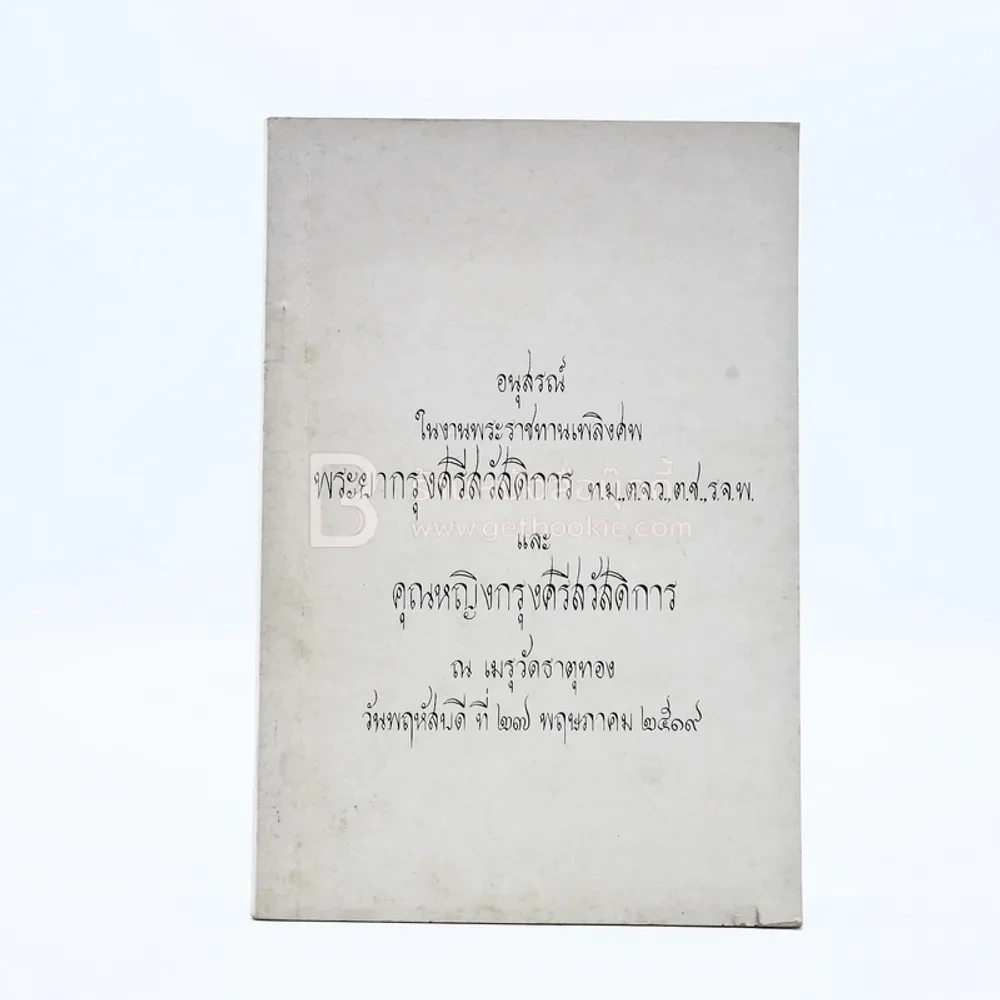 อนุสรณ์
ในงานพระราชทานเพลิงศพ
พระยากรุงศรีสวัสดิการ ท.ม.,ต.จ.ว.,ต.ช.,ร.จ.พ.
www.getbookie.com
และ
คุณหญิงกรุงศรีสวัสดิการ
ณ เมรุวัดธาตุทอง
วันพฤหัสบดี ที่ ๒๗ พฤษภาคม ๒๕๑๙